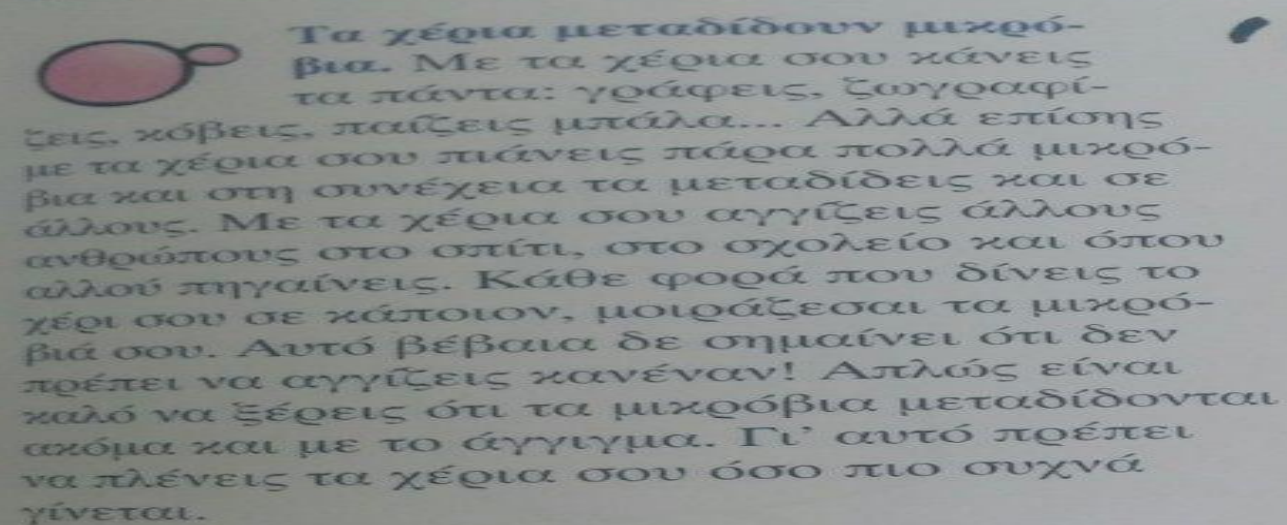 Τα χέρια μεταδίδουν μικρό-
βια. Με τα χέρια σου κάνεις
τα πάντα: γράφεις, ζωγραφί-
ζεις, κόβεις, παίζεις μπάλα... Αλλά επίσης
με τα χέρια σου πιάνεις πάρα πολλά μικρό-
βια και στη συνέχεια τα μεταδίδεις και σε
άλλους. Με τα χέρια σου αγγίζεις άλλους
ανθρώπους στο σπίτι, στο σχολείο και όπου
αλλού πηγαίνεις. Κάθε φορά που δίνεις το
χέρι σου σε κάποιον, μοιράζεσαι τα μικρό-
βιά σου. Αυτό βέβαια δε σημαίνει ότι δεν
πρέπει να αγγίζεις κανέναν! Απλώς είναι
καλό να ξέρεις ότι τα μικρόβια μεταδίδονται
ακόμα και με το άγγιγμα. Γι' αυτό πρέπει
να πλένεις τα χέρια σου όσο πιο συχνά
γίνεται.